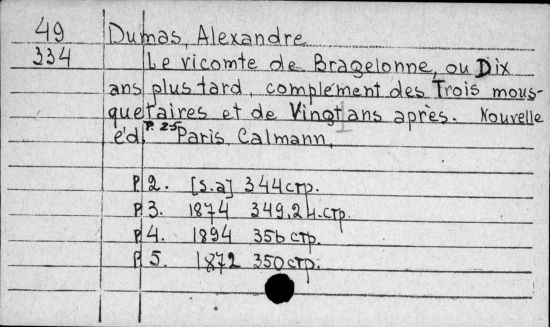 49 Dumas, Alexandre
334 Le vicomte de Bragelonne, ou Dix
ans plus tard, complement des Trois mous-
quetaires et de Vingt ans après. Nouvelle
éd. P. 2-5 Paris, Calmann,
P 2. [s.a] 344стр.
P 3. 1874 349, 24.стр.
P 4. 1894 356 стр.
P 5. 1872 350стр.